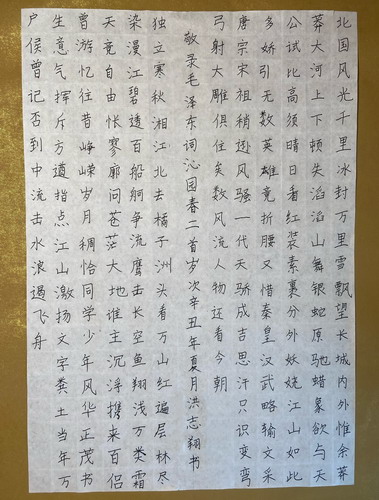 北国风光千里冰封万里雪飘望长城内外惟余莽
莽大河上下顿失滔滔山舞银蛇原驰蜡象欲与天
公试比高须晴日看红装素裹分外妖娆江山如此
多娇引无数英雄竟折腰又惜秦皇汉武略输文采
唐宗宋祖稍逊风骚一代天骄成吉思汗只识变弯
弓射大雕俱往矣数风流人物还看今朝
敬录毛泽东词沁园春二首岁次辛丑年夏月洪志翔书
独立寒秋湘江北去橘子洲头看万山红遍层林尽
染漫江碧透百舸争流鹰击长空鱼翔浅万类霜
天竞自由怅寥廓问苍茫大地谁主沉浮携来百侣
曾游忆往昔峥嵘岁月稠恰同学少年风华正茂书
生意气挥斥方遒指点江山激扬文字粪土当年万
户侯曾记否到中流击水浪遏飞舟